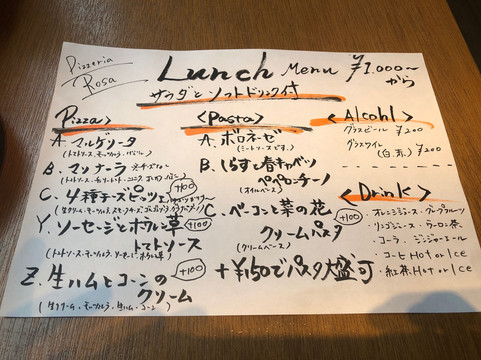 Pizzeria
Rosa
Lunch Menu ¥1.000〜
から
サラダとソフトドリンク付
Pizza>
A. マルゲリータ
(トマトソース、モッツァレラ、バジル)
B. マリナーラ ※チーズなし
C. 4種チーズピッツェ +100
Y. ソーセージとホウレン草 +100
トマトソース
(トマトソース、モッツァレラ、ソーセージ、ホウレン草)
Z. 生ハムとコーンの +100
クリーム
(生クリーム、モッツァレラ、生ハム、コーン)
<Pasta>
A. ボロネーゼ
(ミートソースです。)
B. しらすと春キャベツ
ペペロンチーノ
(オイルベース)
C. ベーコンと菜の花 +100
クリームパスタ
(クリームベース)
+¥150でパスタ大盛可
<Alcohl>
グラスビール ¥200
グラスワイン
(白.赤.) ¥200
<Drink>
・オレンジジュース・グレープフルーツ
・リンゴジュース・ウーロン茶
・コーラ・ジンジャーエール
・コーヒー Hot or Ice
・紅茶 Hot or Ice